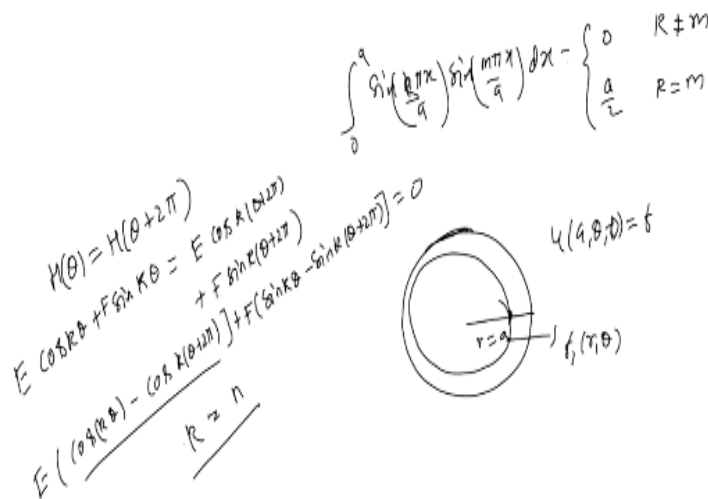 ∫₀ᵃ sin(kπx/a) sin(mπx/a) dx = { 0 k ≠ m
a/2 k = m
H(θ) = H(θ+2π)
E cos kθ + F sin kθ = E cos k(θ+2π)
+ F sin k(θ+2π)
E (cos(kθ) - cos k(θ+2π)] + F(sin kθ - sin k(θ+2π)] = 0
k = n
u(a,θ,t) = f
r = a
f₁(r,θ)